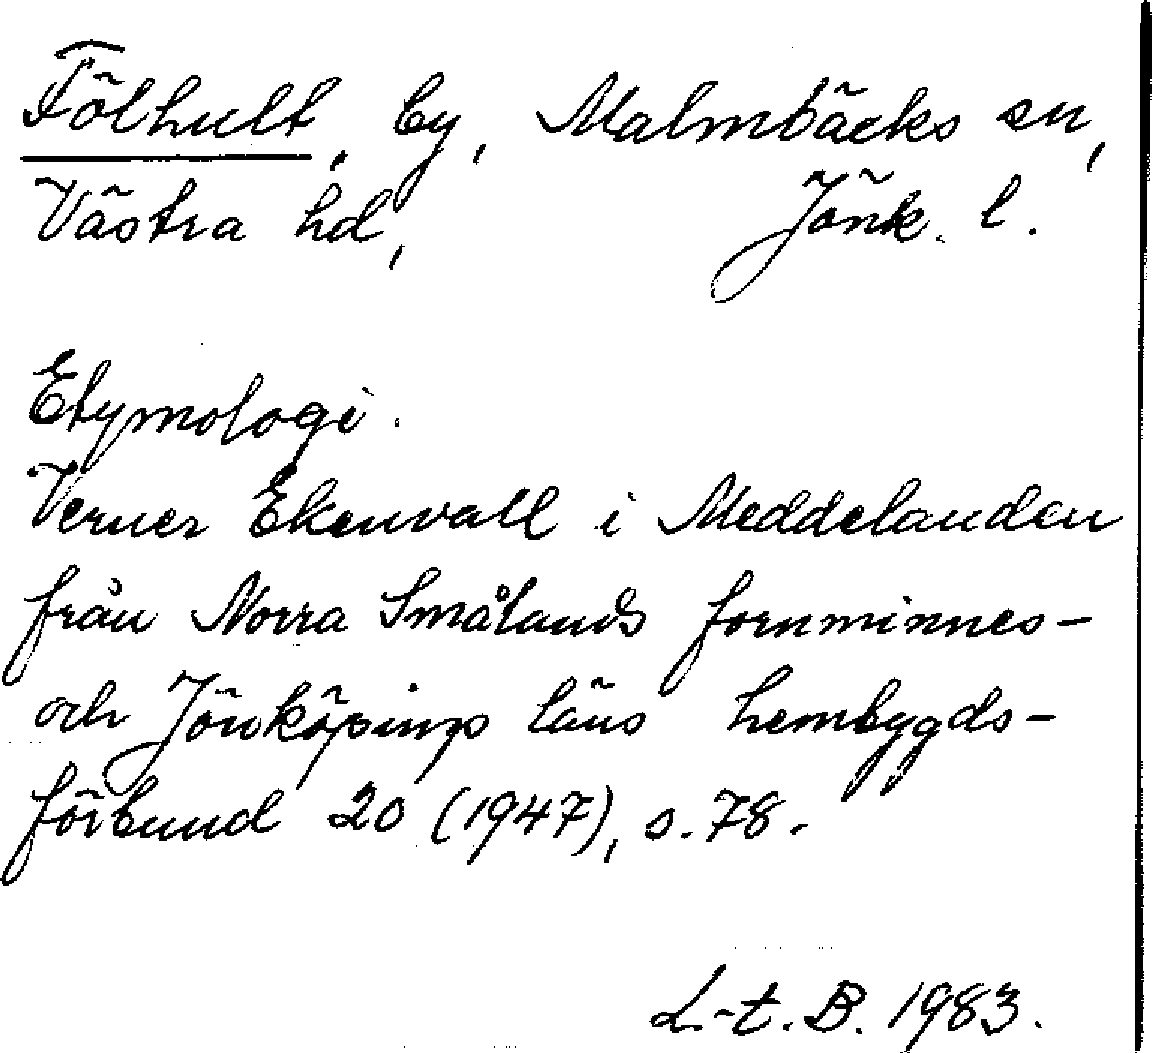 Fölhult, by, Malmbäcks sn,
Västra hd, Jönk. l.
Etymologi.
Verner Ekenvall i Meddelanden
från Norra Smålands fornminnes-
och Jönköpings läns hembygds-
förbund 20 (1947), s. 78.
L-t. B. 1983.